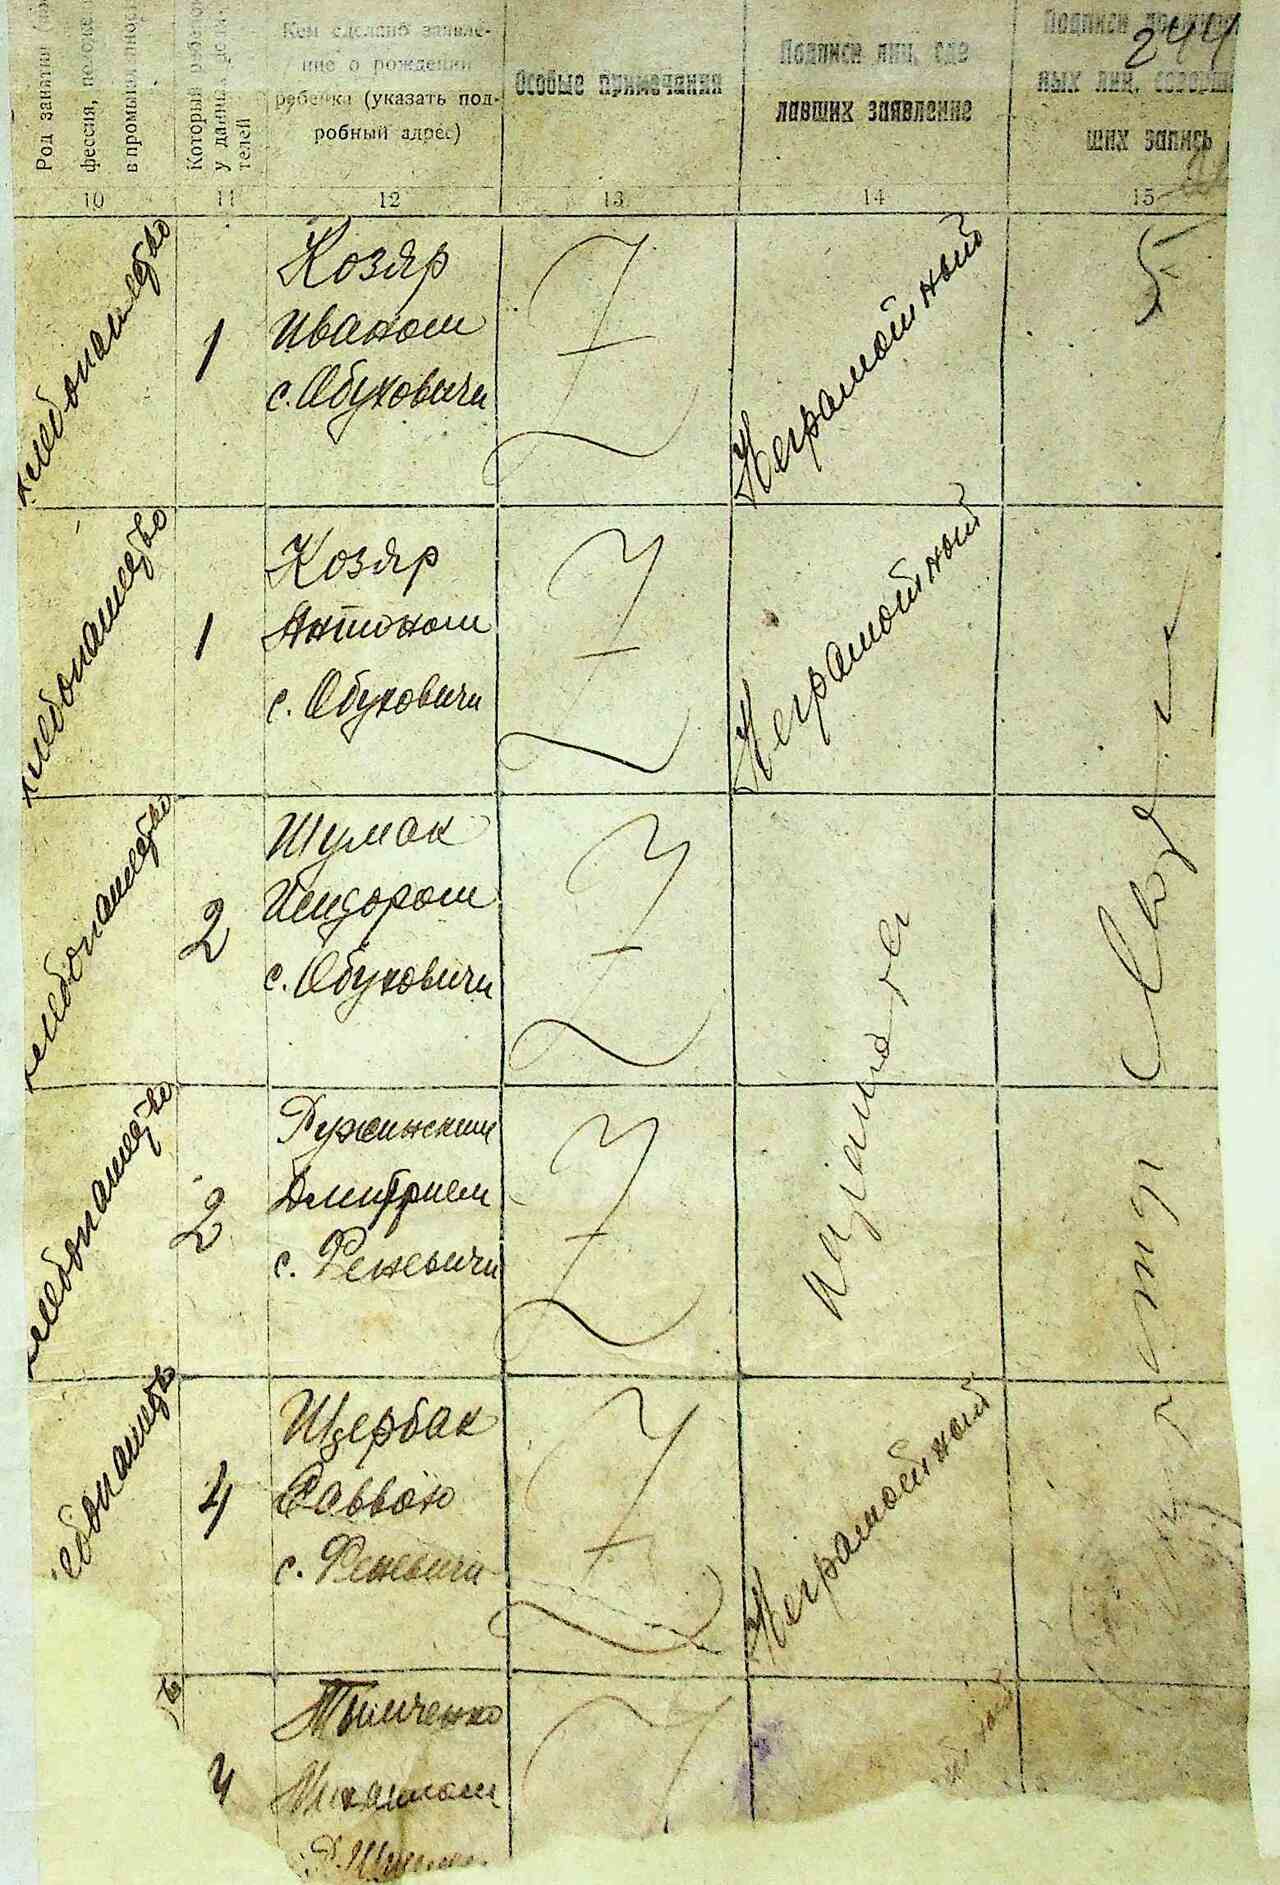 244
Род занятий
фессия, положе
в промысл
Который ребенок
у данных
телей
Кем сделано заявле-
ние о рождении
ребенка (указать под-
робный адрес)
Особые примечания
Подписи лиц, сде
лавших заявление
Подписи
ных лиц, соверш
ших запись
10
11
12
13
14
15
хлебопашество
1
Козяр
Иваном
с. Обуховичи
Z
Неграмотный
хлебопашество
1
Козяр
Антоном
с. Обуховичи
Z
Неграмотный
хлебопашество
2
Шумак
Исидором
с. Обуховичи
Z
хлебопашество
2
Ружинским
Дмитрием
с. Феневичи
Z
ебопашество
4
Щербак
Саввою
с. Феневичи
Z
Неграмотный
во
4
Тымченко
Михаилом